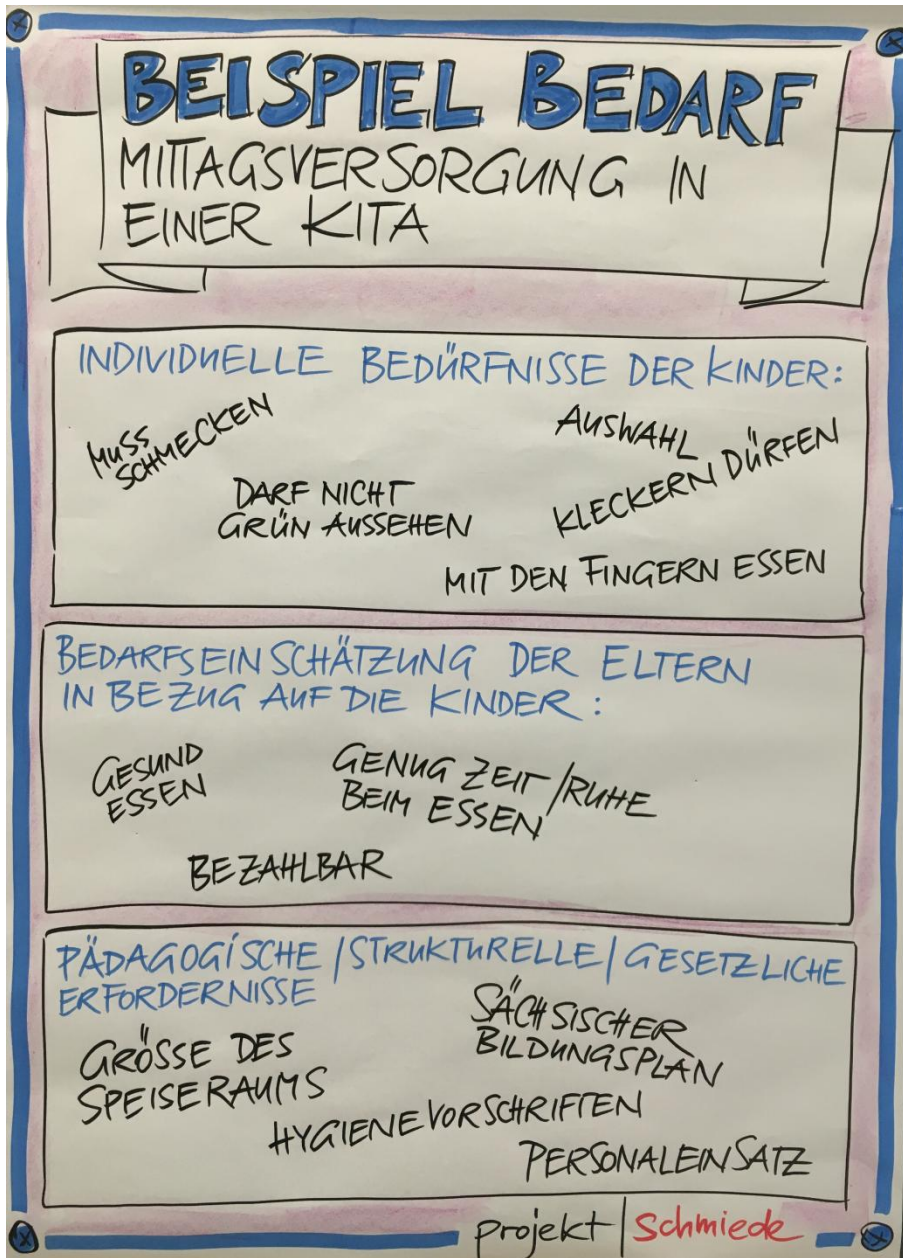 BEISPIEL BEDARF
MITTAGSVERSORGUNG IN
EINER KITA
INDIVIDUELLE BEDÜRFNISSE DER KINDER:
MUSS
SCHMECKEN
AUSWAHL
DARF NICHT
GRÜN AUSSEHEN
KLECKERN DÜRFEN
MIT DEN FINGERN ESSEN
BEDARFSEINSCHÄTZUNG DER ELTERN
IN BEZUG AUF DIE KINDER:
GESUND
ESSEN
GENUG ZEIT/RUHE
BEIM ESSEN
BEZAHLBAR
PÄDAGOGISCHE/STRUKTURELLE/GESETZLICHE
ERFORDERNISSE
GRÖSSE DES
SPEISERAUMS
SÄCHSISCHER
BILDUNGSPLAN
HYGIENEVORSCHRIFTEN
PERSONALEINSATZ
projekt|Schmiede